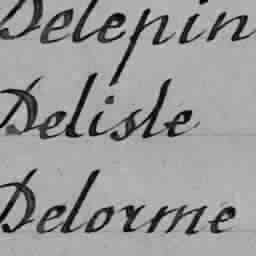 Delepin
Delisle
Delorme